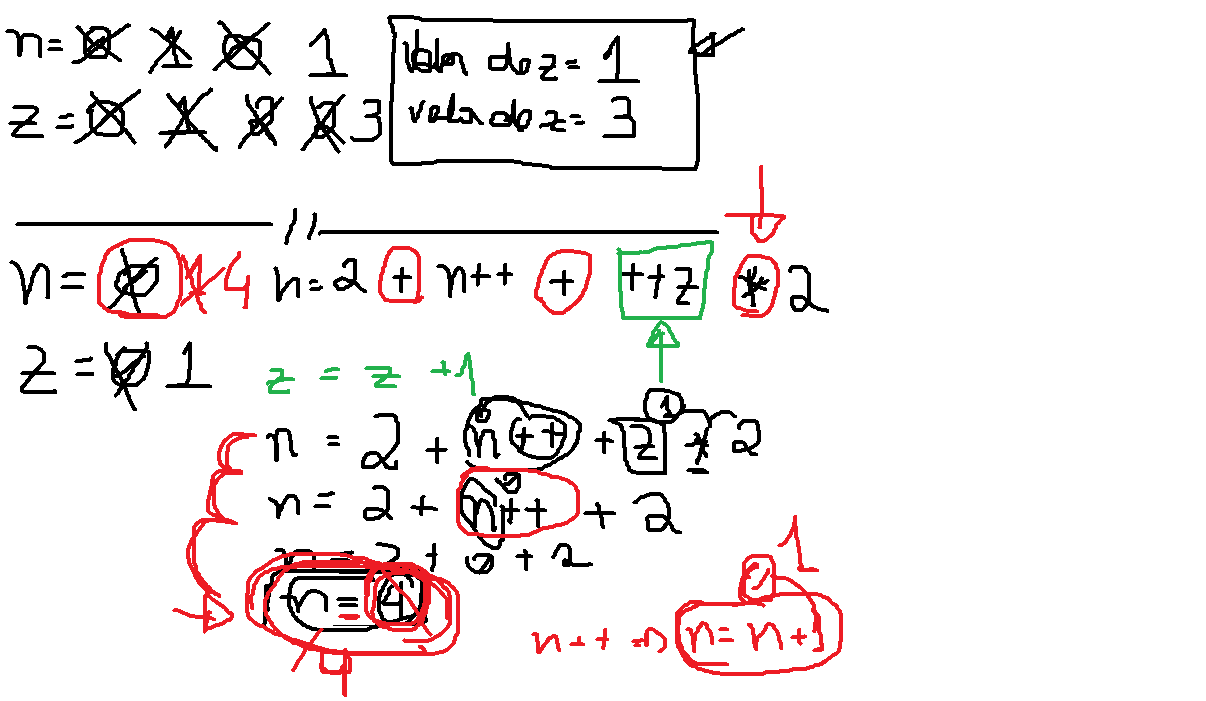 n= 0 1 0 1
z = 0 1 2 2 3
Valor de z = 1
valor de z = 3
//
n = 0 1 4 n = 2 + n++ + ++z * 2
z = 0 1
z = z + 1
n = 2 + n++ + z * 2
0 1
n = 2 + n++ + 2
0
n = 2 + 0 + 2
n = 4
1
n++ => n = n + 1